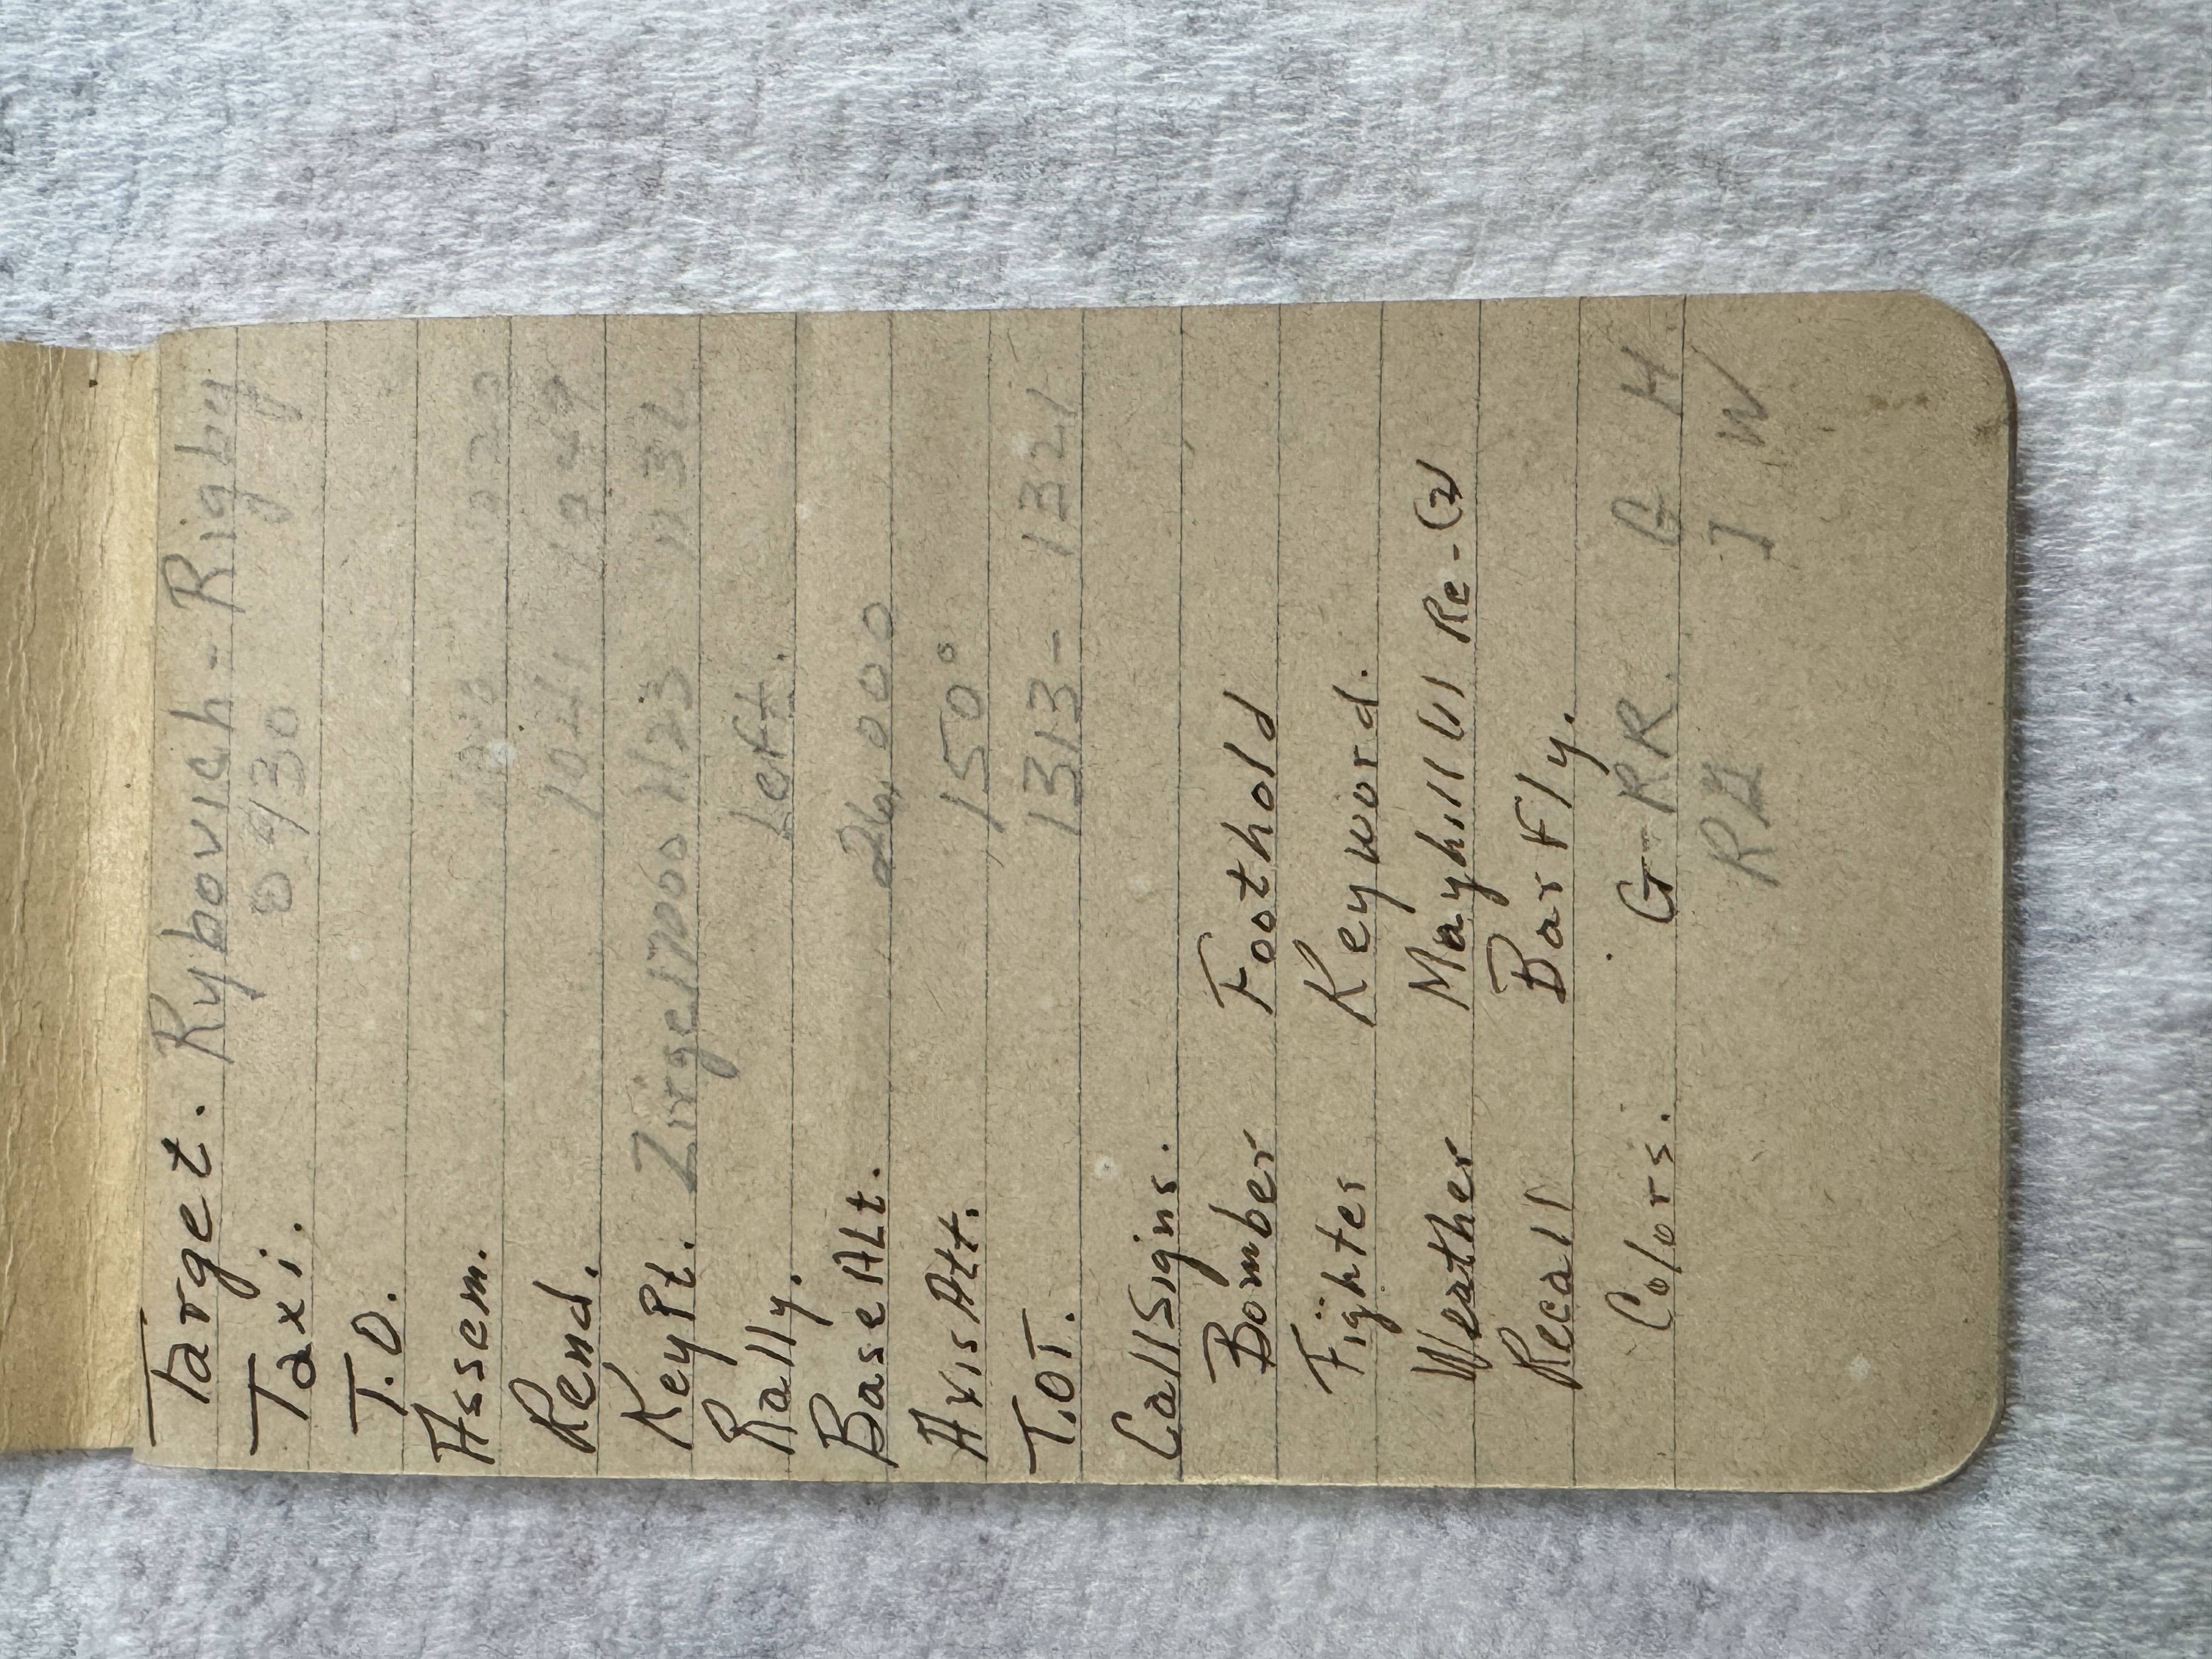 Target. Rybovich - Rigby
Taxi. 0930
T.O.
Assem.
Rend. 1021 1249
Key Pt. Zirge 17000 1123 1132
Rally. Left.
Base Alt. 26,000
Axis Att. 150°
T.O.T. 1313 - 1321
Call Signs.
Bomber Foothold
Fighter Keyword.
Weather Mayhill (1) Re-(2)
Recall Barfly.
Colors. G-RR. G H
I W